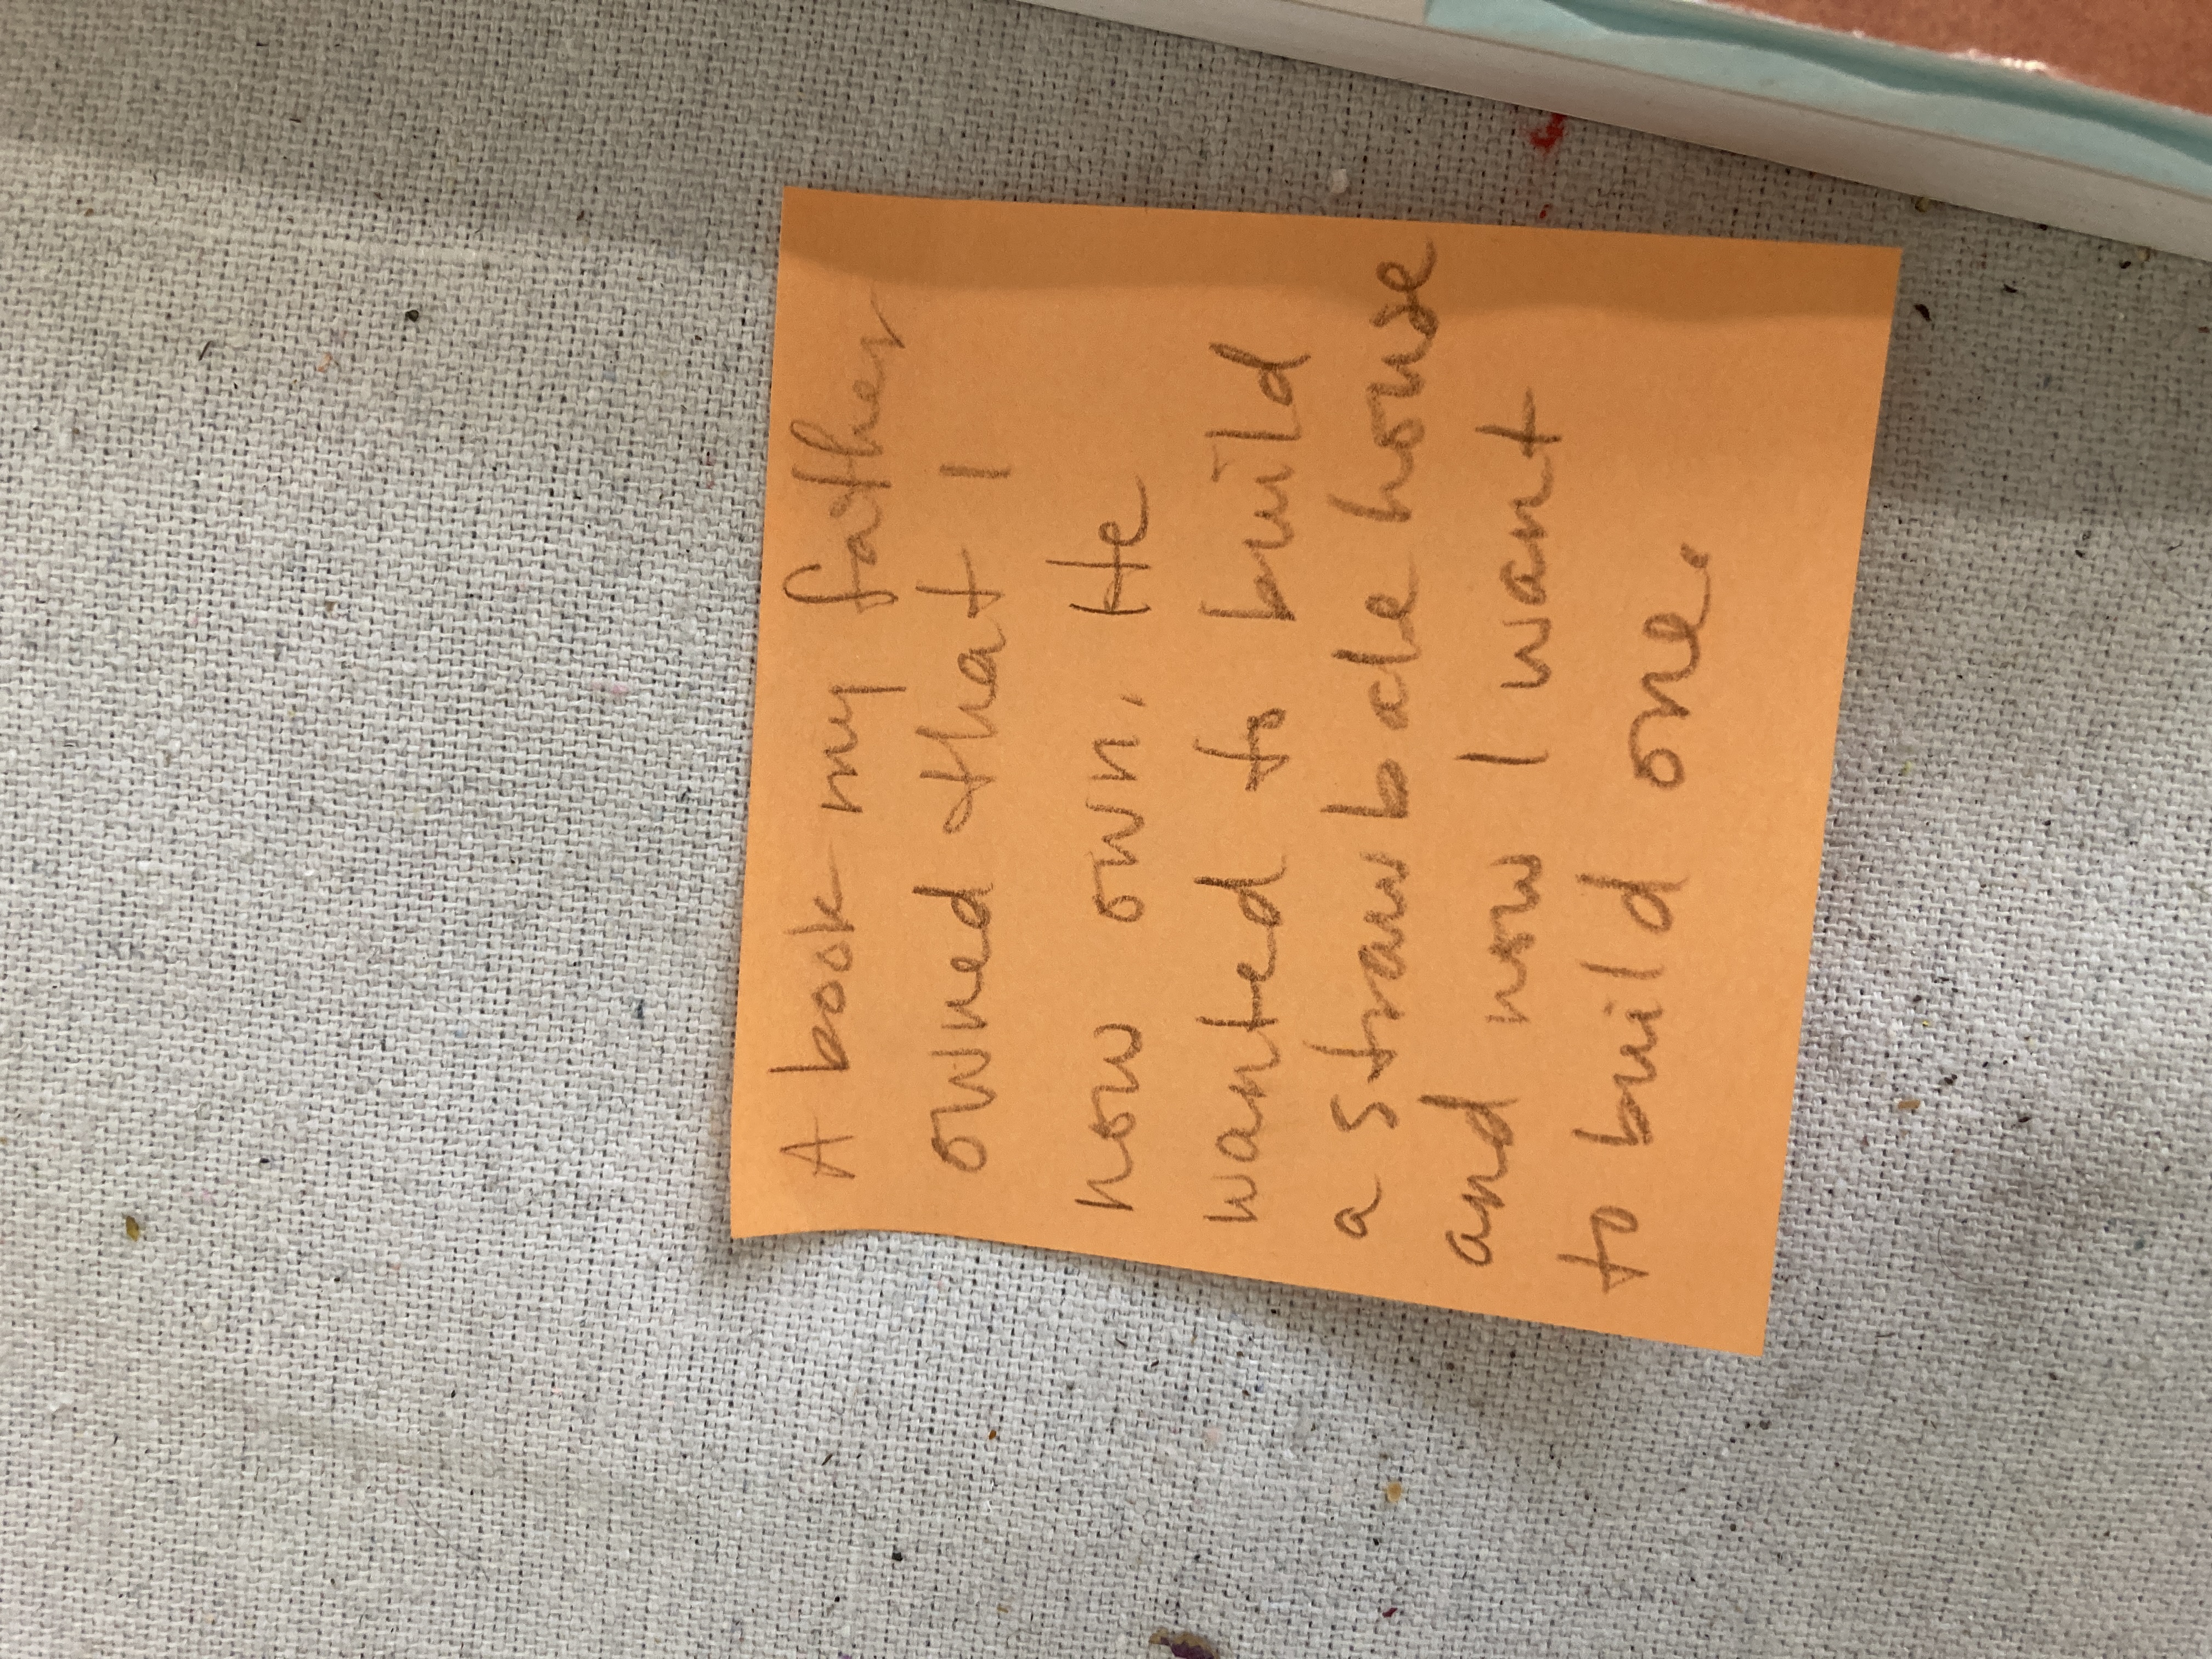 A book my father
owned that I
now own. He
wanted to build
a straw bale house
and now I want
to build one.